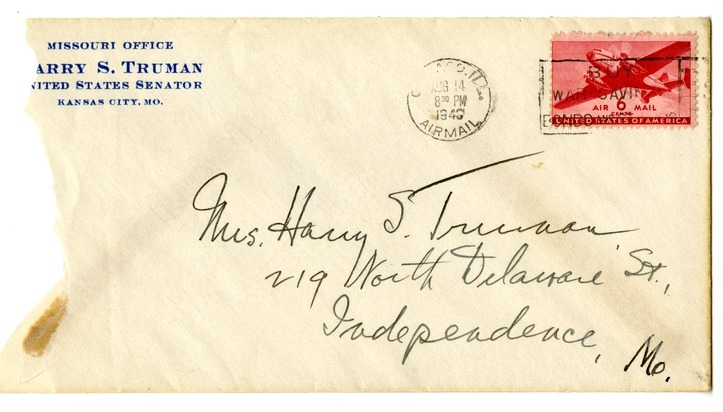 MISSOURI OFFICE
ARRY S. TRUMAN
NITED STATES SENATOR
KANSAS CITY, MO.
AUG 14
8 30 PM
1943
AIRMAIL
BUY
WAR SAVIN
BONDS
AIR 6 MAIL
CENTS
UNITED STATES OF AMERICA
Mrs. Harry S. Truman
219 North Delaware St.,
Independence,
Mo.